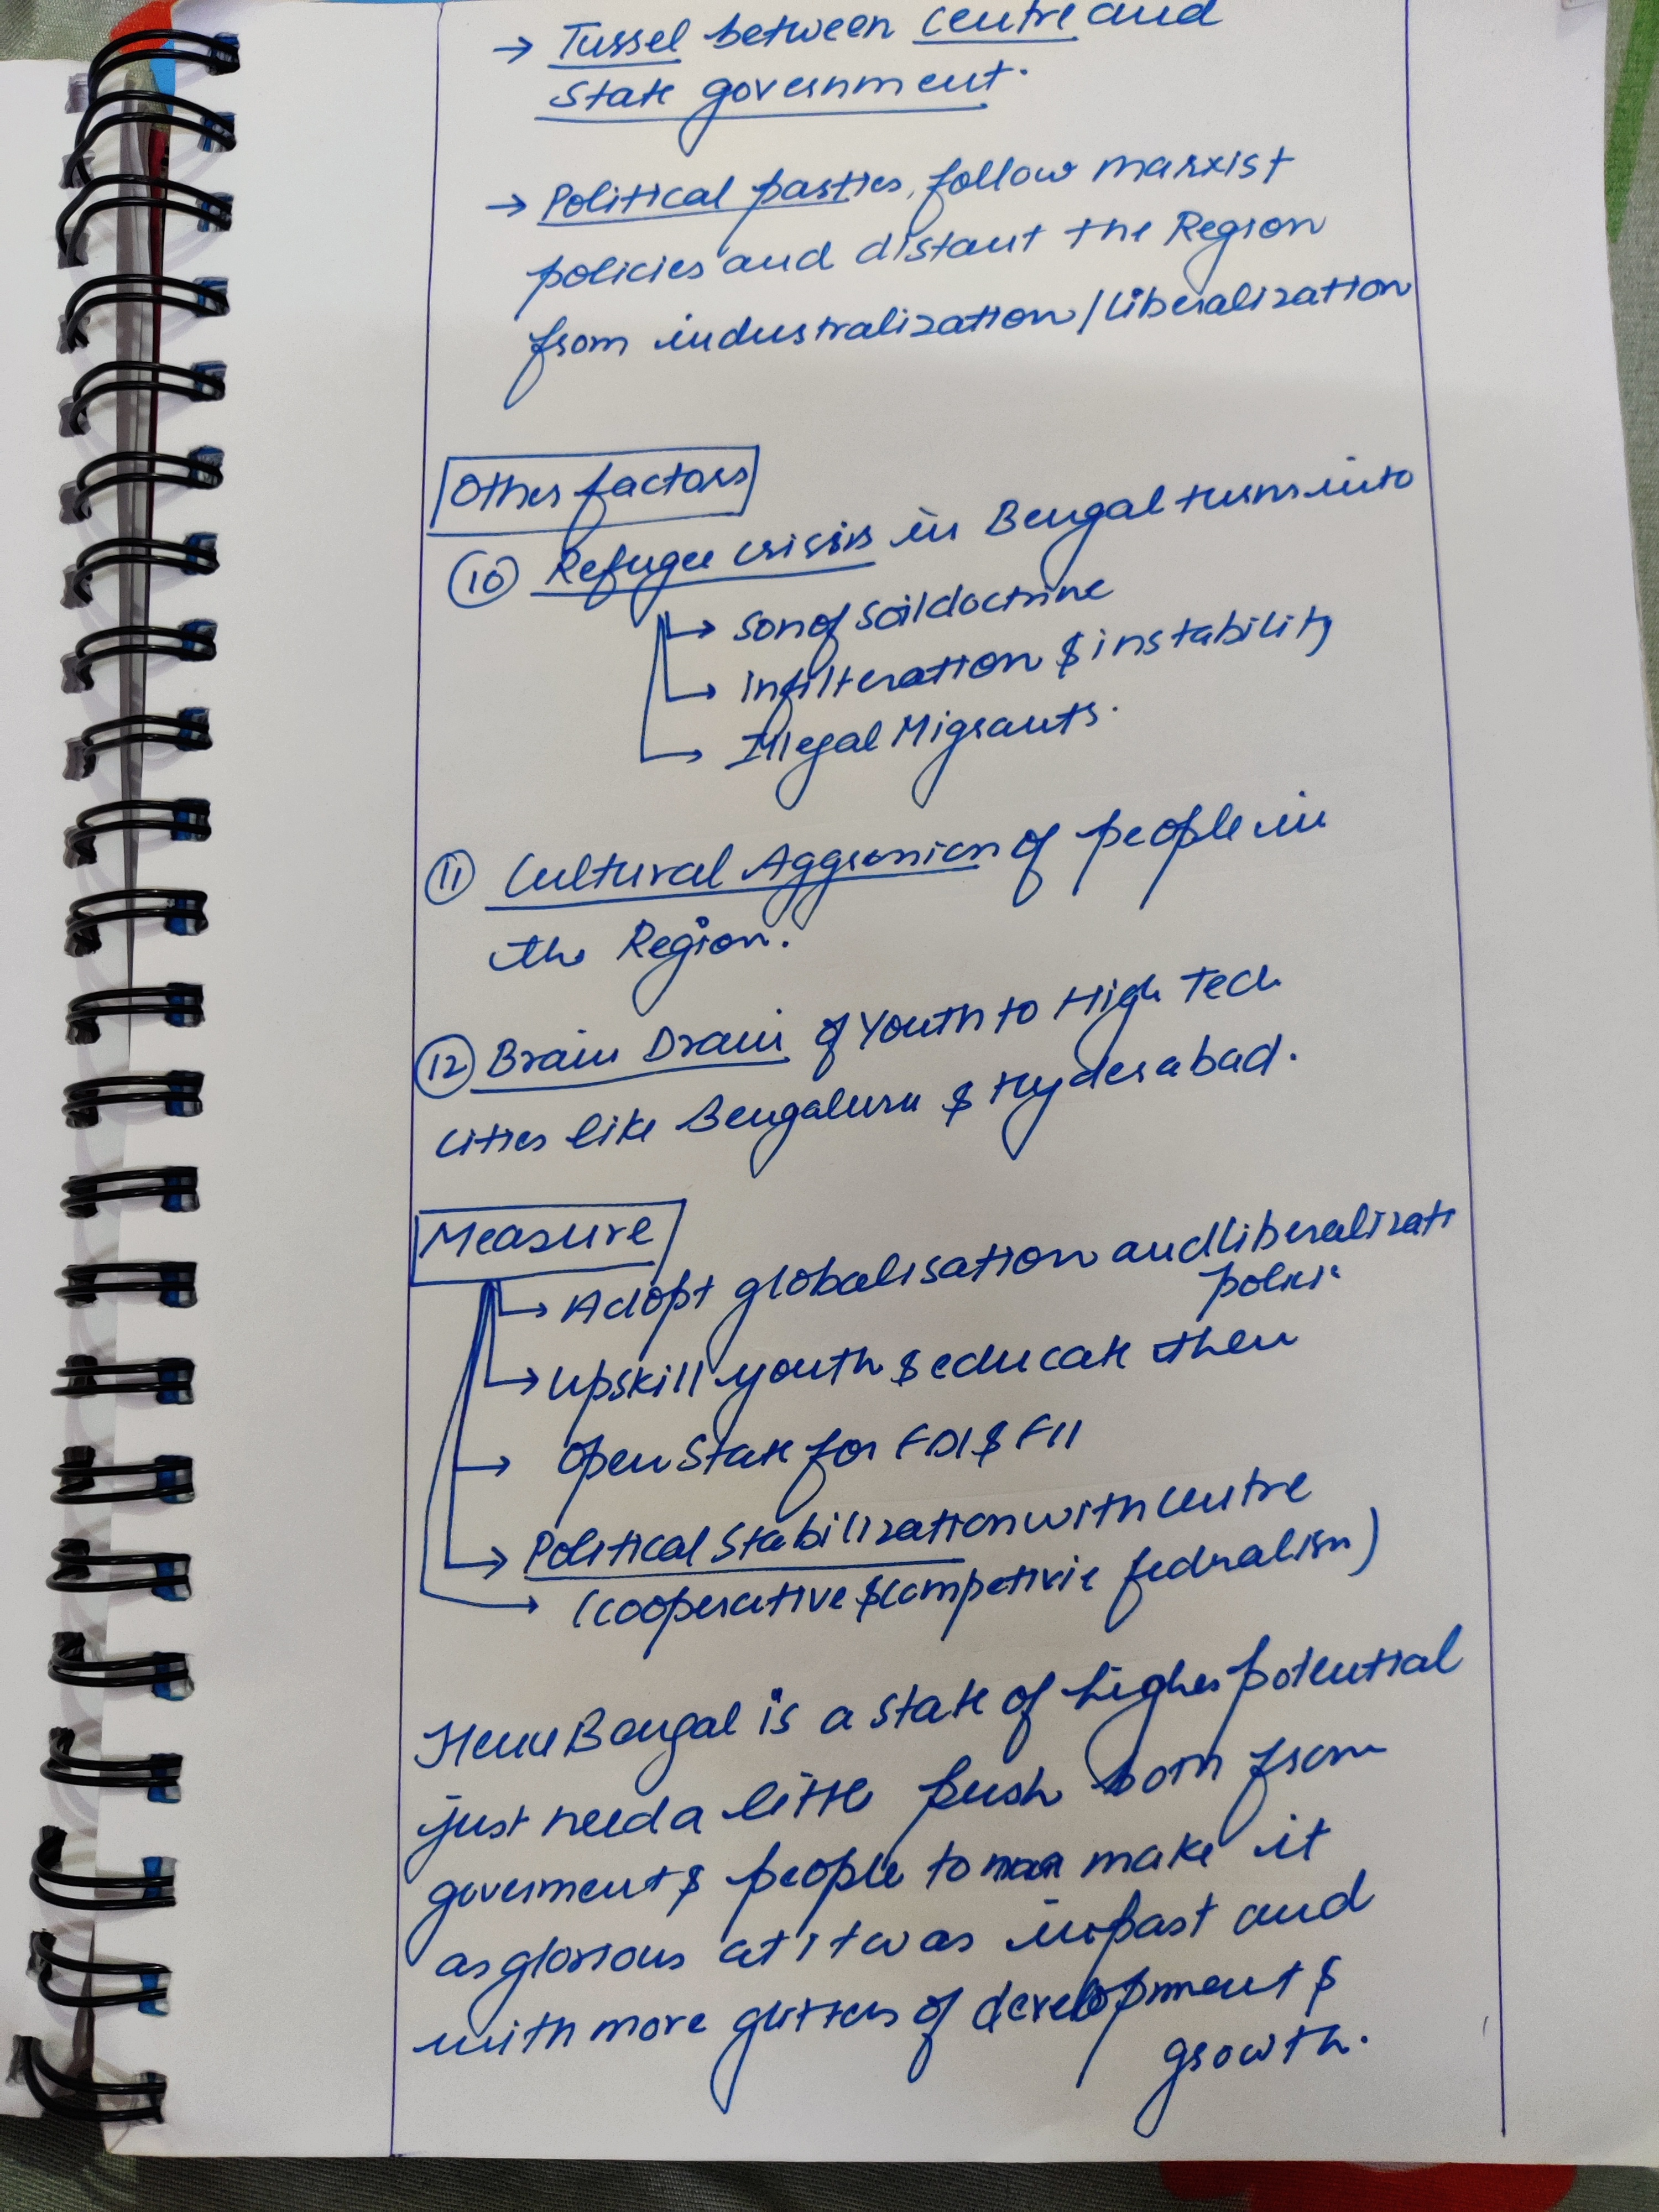 → Tussel between centre and
State government.
→ Political parties, follow marxist
policies and distant the Region
from industralization/liberalization
Other factors
(10) Refugee crisis in Bengal turns into
→ son of soil doctrine
→ infilteration & instability
→ Illegal Migrants.
(11) Cultural Aggression of people in
the Region.
(12) Brain Drain of Youth to High Tech
cities like Bengaluru & Hyderabad.
Measure
→ Adopt globalisation and liberalizati
polici
→ upskill youth & educate them
→ Open State for FDI & FII
→ Political Stabilization with centre
→ (cooperative & competivie federalism)
Hence Bengal is a state of higher potential
just need a little push both from
goverment & people to make it
as glorious at it was in past and
with more glitters of development &
growth.